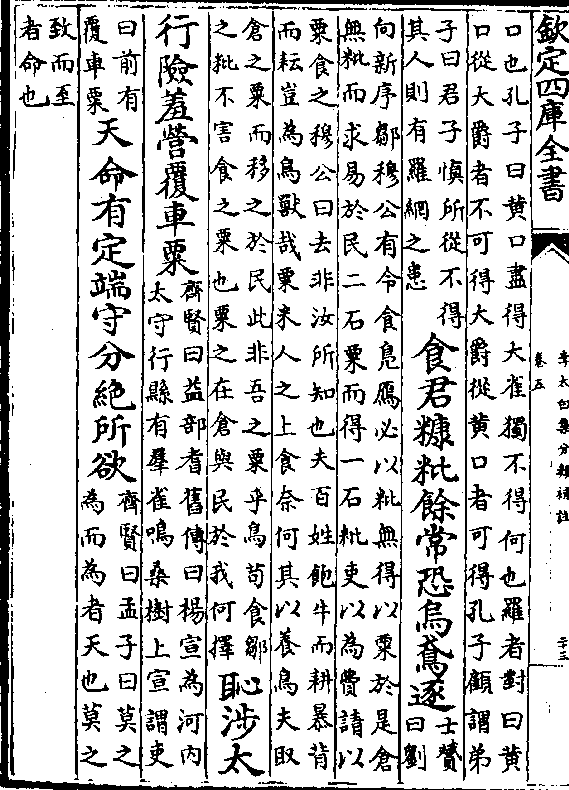 欽定四庫全書
李太白集分類補註
卷五
二十三
口也孔子曰黄口盡得大雀獨不得何也羅者對曰黄
口從大爵者不可得大爵從黄口者可得孔子顧謂弟
子曰君子慎所從不得
其人則有羅網之患
食君糠粃餘常恐烏鳶逐
士贇
曰劉
向新序鄒穆公有令食鳬鴈必以粃無得以粟於是倉
無粃而求易於民二石粟而得一石粃吏以為費請以
粟食之穆公曰去非汝所知也夫百姓飽牛而耕暴背
而耘豈為鳥獸哉粟米人之上食奈何其以養鳥夫取
倉之粟而移之於民此非吾之粟乎鳥苟食鄒
之粃不害食之粟也粟之在倉與民於我何擇
恥涉太
行險羞營覆車粟
齊賢曰益部耆舊傳曰楊宣為河内
太守行縣有羣雀鳴桑樹上宣謂吏
曰前有
覆車粟
天命有定端守分絶所欲
齊賢曰孟子曰莫之
為而為者天也莫之
致而至
者命也